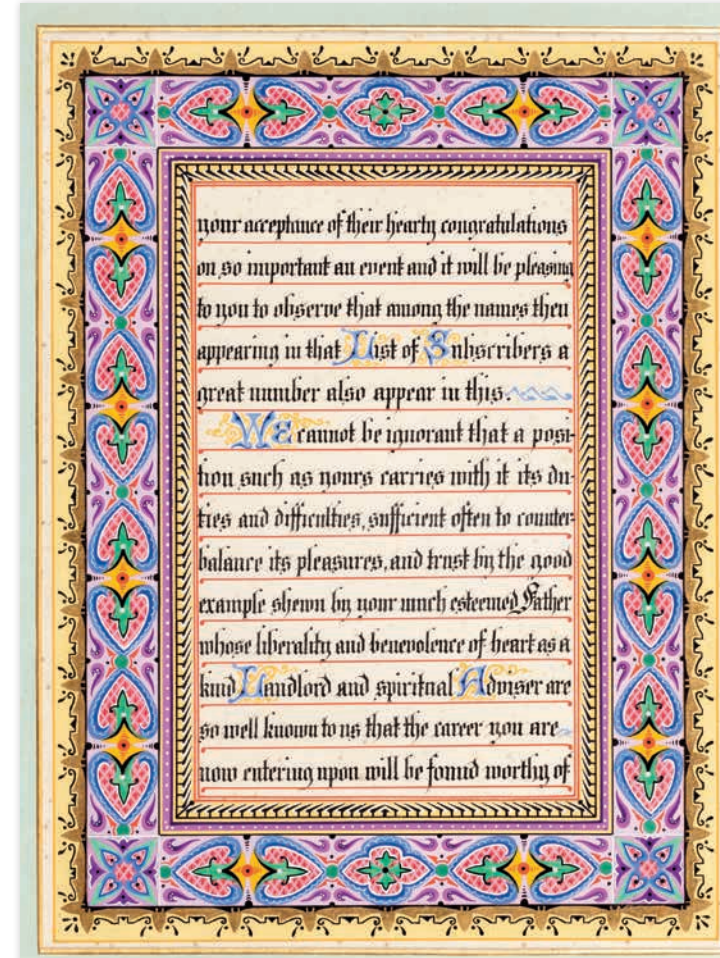 your acceptance of their hearty congratulations
on so important an event and it will be pleasing
to you to observe that among the names then
appearing in that List of Subscribers a
great number also appear in this.
We cannot be ignorant that a posi-
tion such as yours carries with it its du-
ties and difficulties, sufficient often to counter-
balance its pleasures, and trust by the good
example shewn by your much esteemed Father
whose liberality and benevolence of heart as a
kind Landlord and spiritual Adviser are
so well known to us that the career you are
now entering upon will be found worthy of